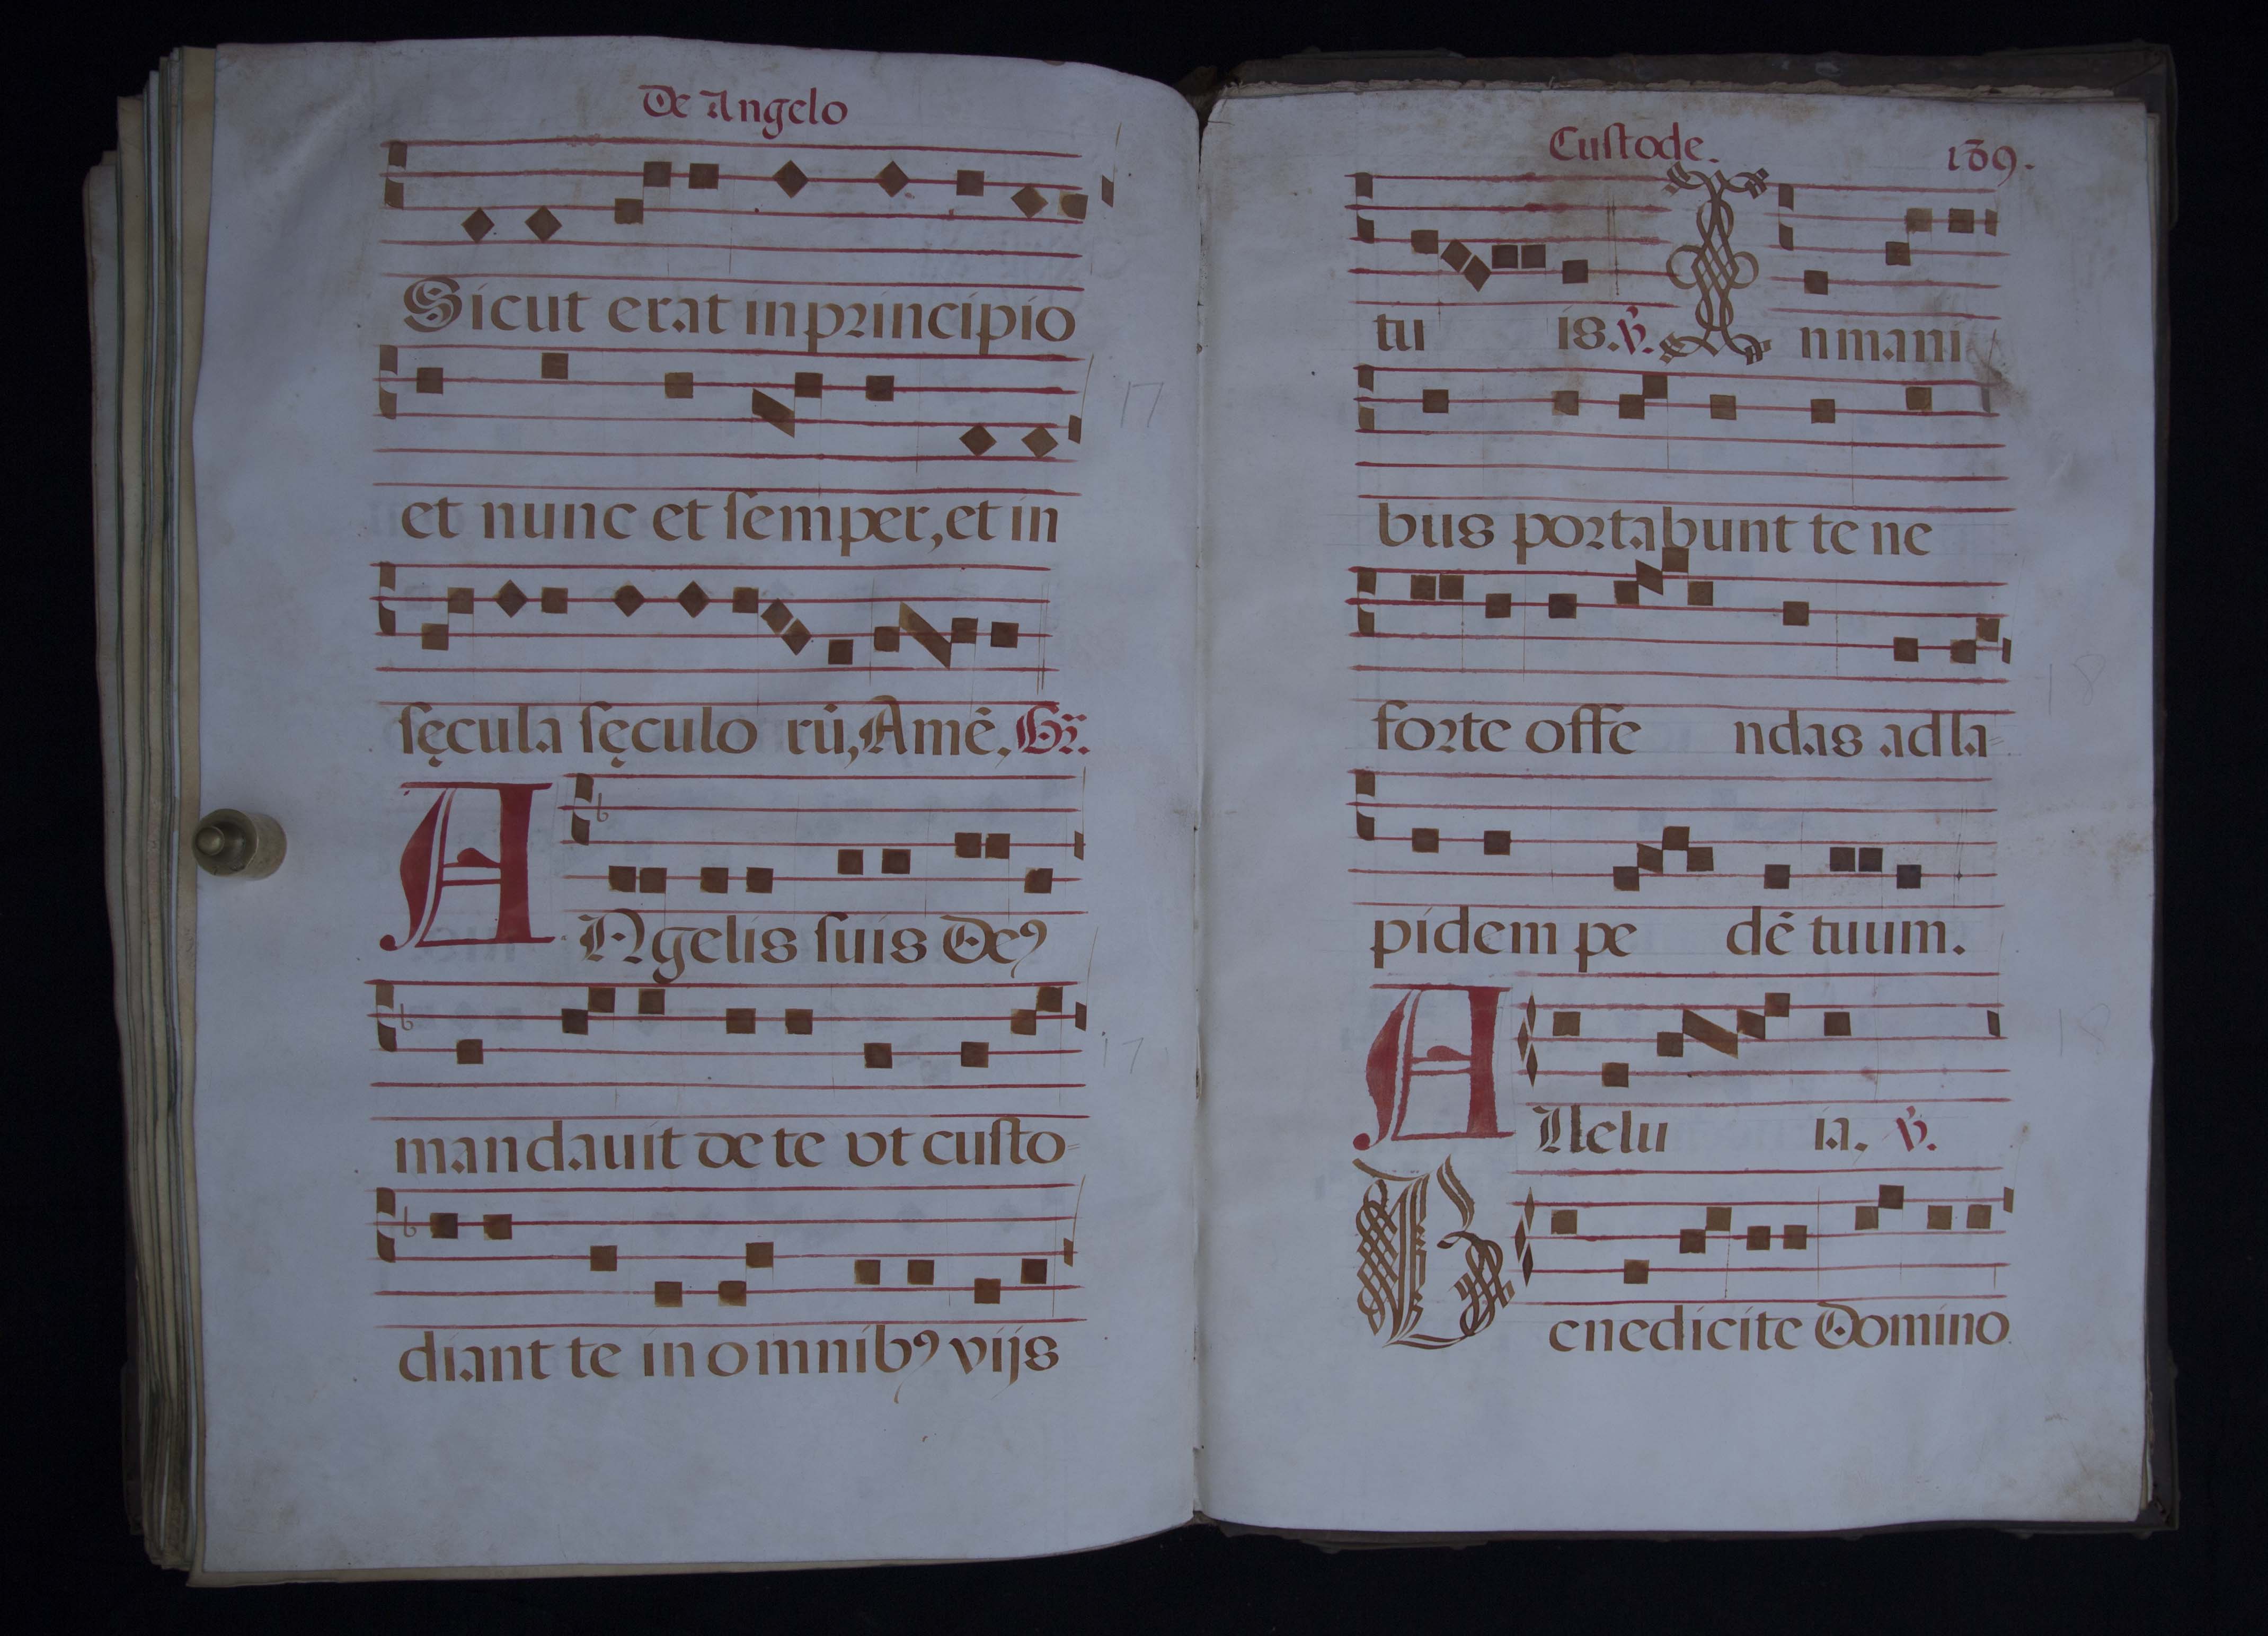 De Angelo
Sicut erat in principio
et nunc et ſemper, et in
ſęcula ſęculo rū, Amē. Gr̄.
ANgelis ſuis Deꝰ
mandauit de te vt cuſto=
diant te in omnibꝰ vijs
17
17
Cuſtode.
189.
tu is. ℣. In mani
bus portabunt te ne
forte offe ndas ad la=
pidem pe dē tuum.
Allelu ia. ℣.
Benedicite Domino
18
18